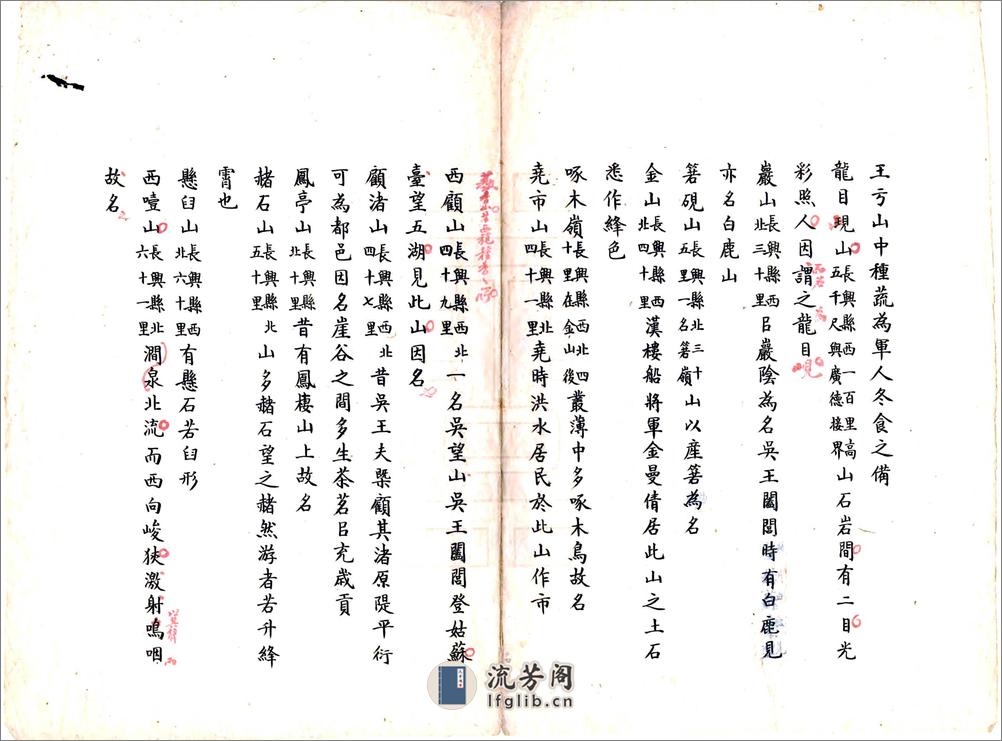 王於山中種蔬為軍人冬食之備
龍目現山長興縣西一百里高五千尺與廣德接界山石岩間有二目光
彩照人因謂之龍目
巖山長興縣西北三十里㠯巖陰為名吳王闔閭時有白鹿見
亦名白鹿山
箬硯山長興縣北三十五里一名箬嶺山以產箬為名
金山長興縣西北四十里漢樓船將軍金曼倩居此山之土石
悉作絳色
啄木嶺長興縣西北四十里在金山後叢薄中多啄木鳥故名
堯市山長興縣西北四十一里堯時洪水居民於此山作市
西顧山長興縣西北四十九里一名吳望山吳王闔閭登姑蘇
臺望五湖見此山因名
顧渚山長興縣西北四十七里昔吳王夫槩顧其渚原隄平衍
可為都邑因名崖谷之間多生茶茗㠯充歲貢
鳳亭山長興縣北十里昔有鳳棲山上故名
赭石山長興縣北五十里山多赭石望之赭然游者若升絳
霄也
懸臼山長興縣西北六十里有懸石若臼形
西噎山長興縣西北六十一里澗泉北流而西向峻狹激射鳴咽
故名
流芳阁
lfglib.cn